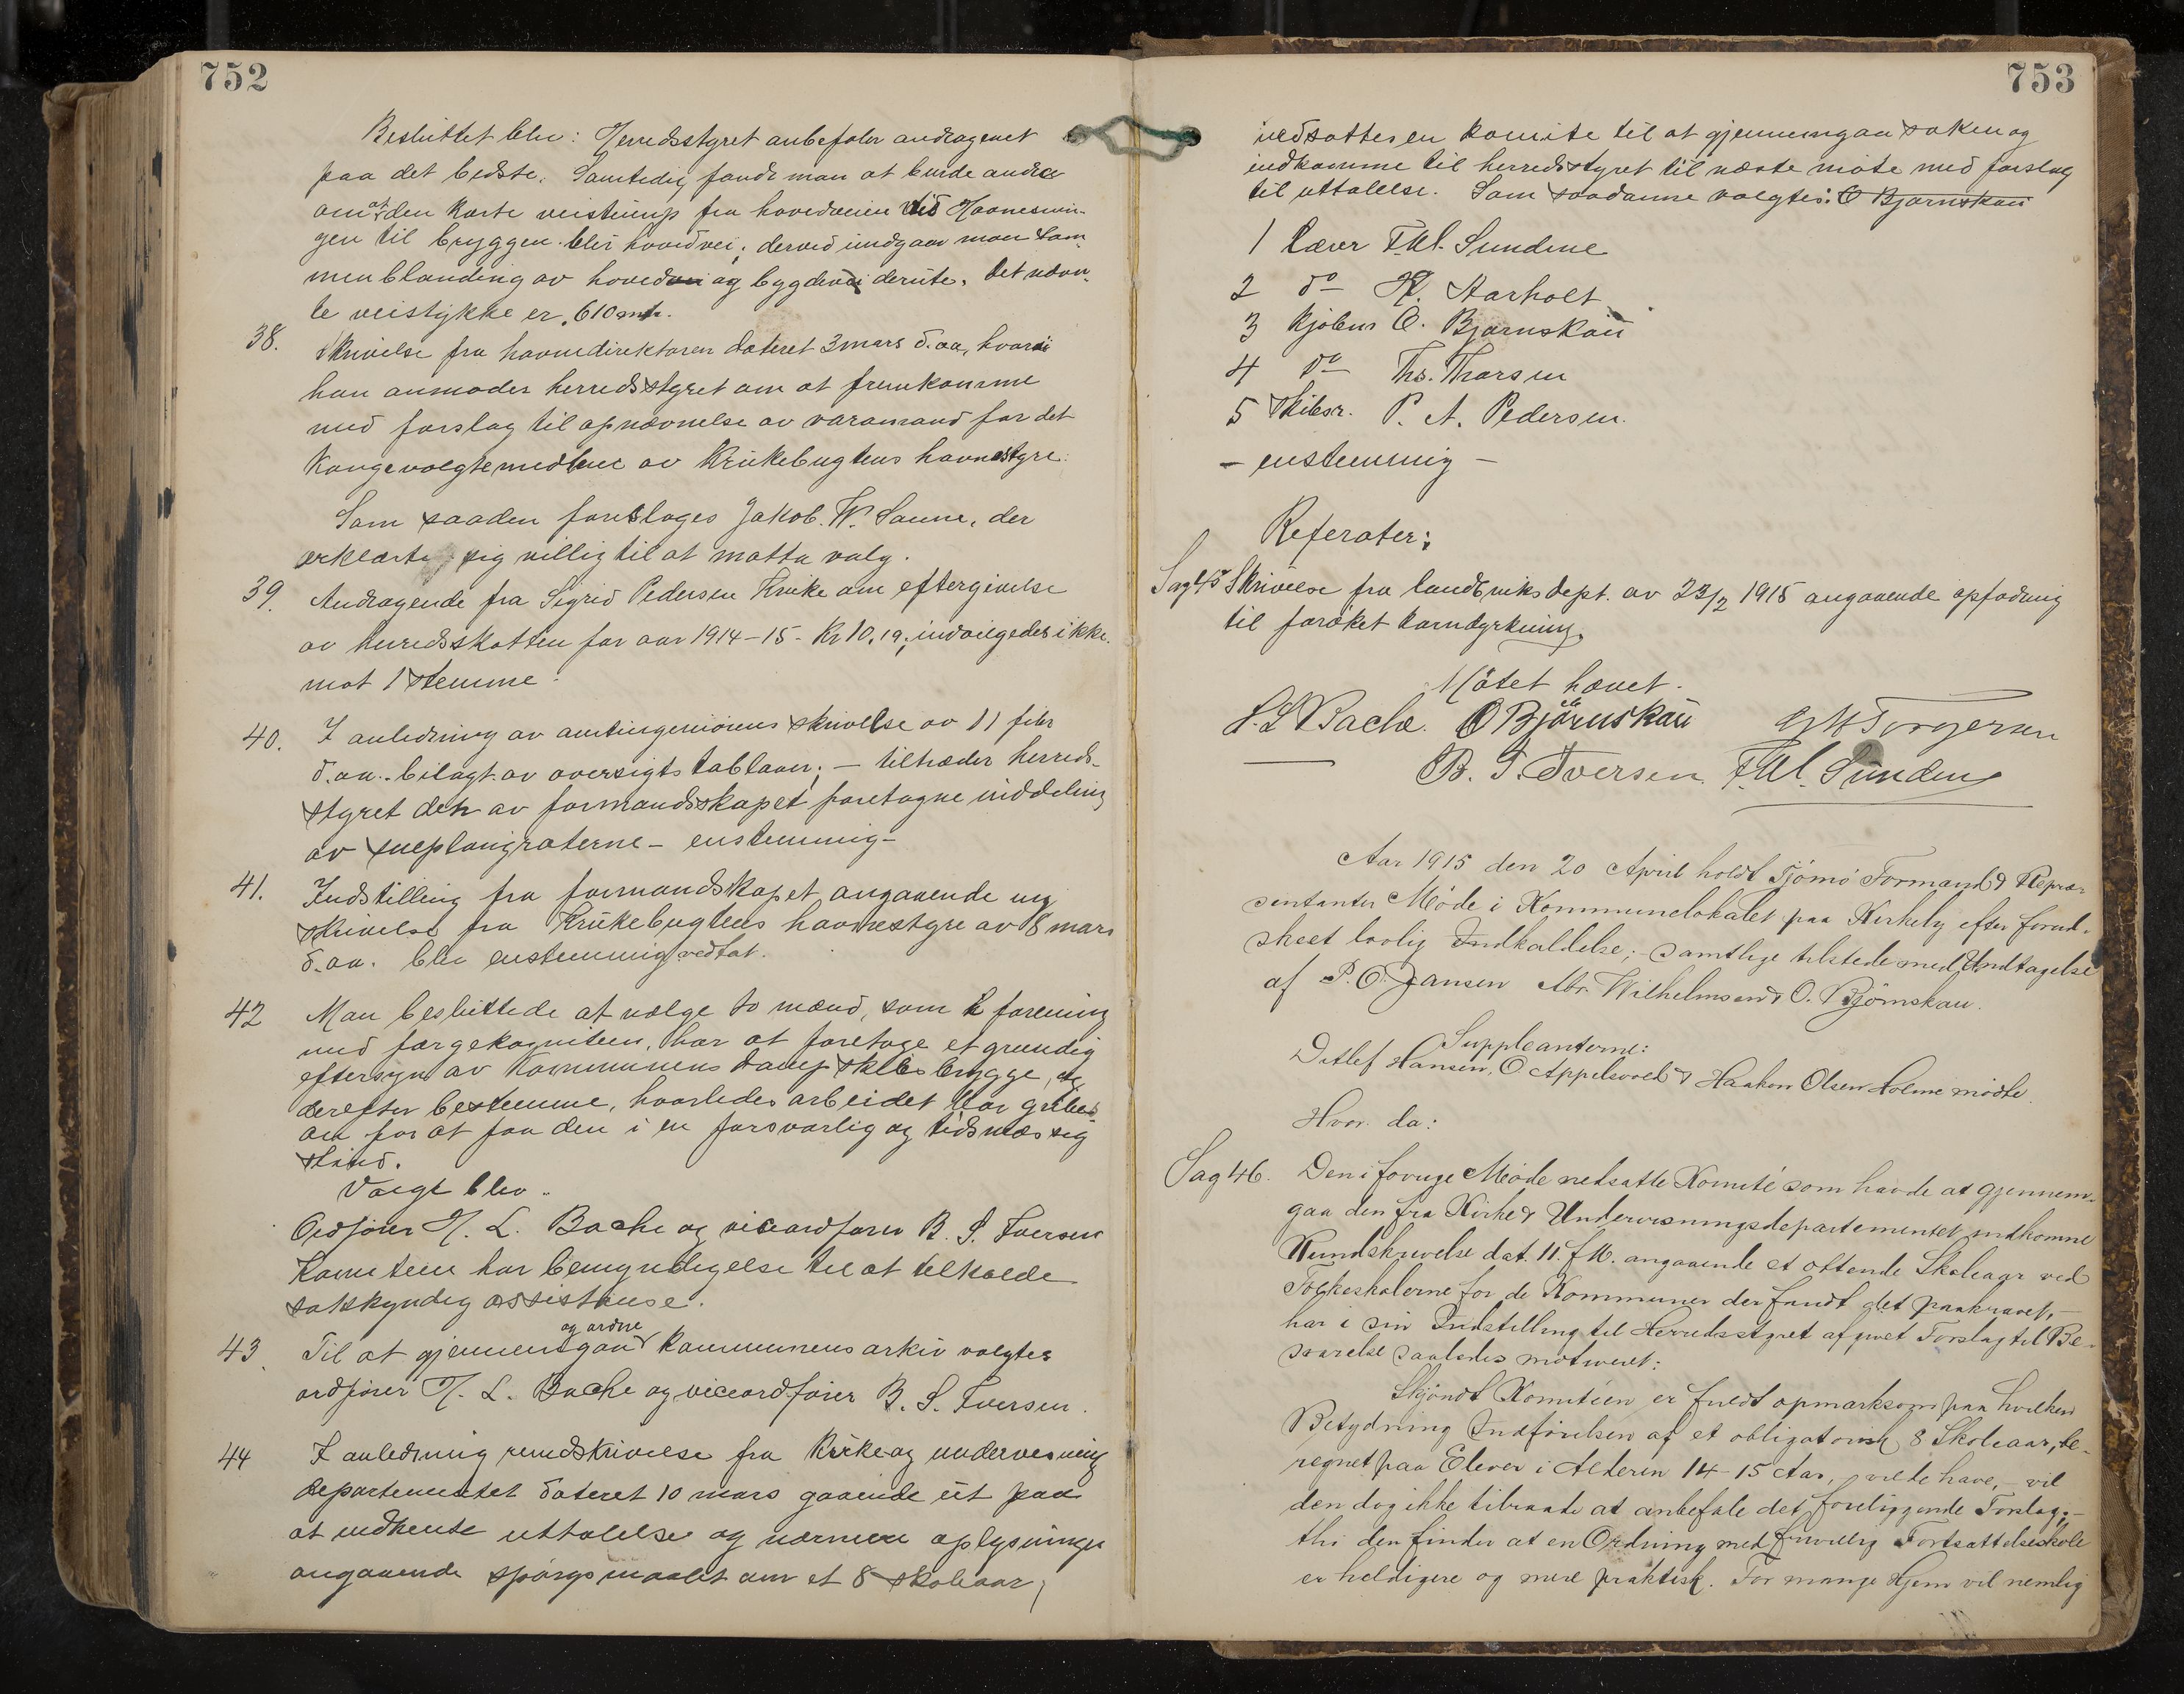 752
Besluttet blev: Herredsstyret anbefaler andragenet
paa det bedste. Samtidig fandt man at burde andra
om at den korte veistump fra hovedveien ved Havnesvin-
gen til bryggen blir hovedvei; derved undgaar man sam-
menblanding av hovedvei og bygdevei derute. Det nævn-
te veistykke er 610 mtr.
38. Skrivelse fra havnedirektøren dateret 3 mars d.aa, hvori
han anmoder herredsstyret om at fremkomme
med forslag til opnævnelse av varamand for det
kongevalgte medlem av Krukebugtens havnestyre.
Som saaden foresloges Jakob. W. Saune, der
erklærte sig villig til at motta valg.
39. Andragende fra Sigrid Pedersen Kruke om eftergivelse
av herredsskatten for aar 1914-15- Kr 10,19, indvilgedes ikke.
mot 1 stemme.
40. I anledning av amtsingeniørens skrivelse av 11 febr
d.aa. bilagt av oversigts tablaaer; – tiltræder herreds-
styret den av formandsskapet foretagne inddeling
av sneplougraterne – enstemmig –
41. Indstilling fra formandskapet angaaende ny
skrivelse fra Krukebugtens havnestyre av 8 mars
d.aa. blev enstemmig vedtat.
42 Man besluttede at vælge to mænd, som i forening
med færgekomiteen, har at foretage et grundig
eftersyn av kommunens dampskibsbrygge, og
derefter bestemme, hvorledes arbeidet bør gribes
an for at faa den i en forsvarlig og tidsmæssig
stand.
Valgt blev.
Ordfører H. L. Bache og viceordfører B. S. Iversen
Komiteen har bemyndigelse til at tilkalde
sakkyndig assistanse.
og ordne
43. Til at gjennemgaa kommunens arkiv valgtes
ordfører H. L. Bache og viceordfører B. S. Iversen.
44 I anledning rundskrivelse fra Kirke og undervisning
departementet dateret 10 mars gaaende ut paa
at indhente uttalelse og nærmere oplysninger
angaaende spørgsmaalet om et 8 skoleaar,
753
nedsattes en komite til at gjennemgaa saken og
indkomme til herredsstyret til næste møte med forslag
til uttalelse. Som saadanne valgtes: O Bjørnskau
1 Lærer F.M. Sundene
2 do H. Aarholt
3 Kjøbm O. Bjørnskau
4 do Ths. Thorsen
5 Skibsr. P. A. Pedersen.
– enstemmig –
Referater:
Sag 45 Skrivelse fra landbruksdept. av 23/2 1915 angaaende opfodring
til forøket korndyrkning.
Møtet hævet.
H. L Bache. O Bjørnskau G H Torgersen
B. S. Iversen. F.M. Sundene
Aar 1915 den 20 April holdt Tjømø Formand & Repræ-
sentanter Møde i Kommunelokalet paa Kirkely efter forud-
skeet lovlig Indkaldelse; – samtlige tilstede med Undtagelse
af P. O. Jansen Abr. Wilhelmsen & O. Bjørnskau.
Suppleanterne:
Ditlef Hansen, O Appelsvold & Haakon Olsen Holme mødte.
Hvor da:
Sag 46. Den i forrige Møde nedsatte Komité som havde at gjennem-
gaa den fra Kirke & Undervisningsdepartementet indkomne
Rundskrivelse dat. 11. f M. angaaende et ottende Skoleaar ved
Folkeskolerne for de Kommuner der fandt det paakrævet, –
har i sin Indstilling til Herredsstyret afgivet Forslag til Be-
svarelse saaledes motiveret:
Skjøndt Komitéen er fuldt opmærksom paa hvilken
Betydning Indførelsen af et obligatorisk 8 Skoleaar, be-
regnet paa Elever i Alderen 14-15 Aar, vilde have, – vil
den dog ikke tilraade at anbefale det foreliggende Forslag, –
thi den finder at en Ordning med frivillig Fortsættelseskole
er heldigere og mere praktisk. For mange Hjem vil nemlig